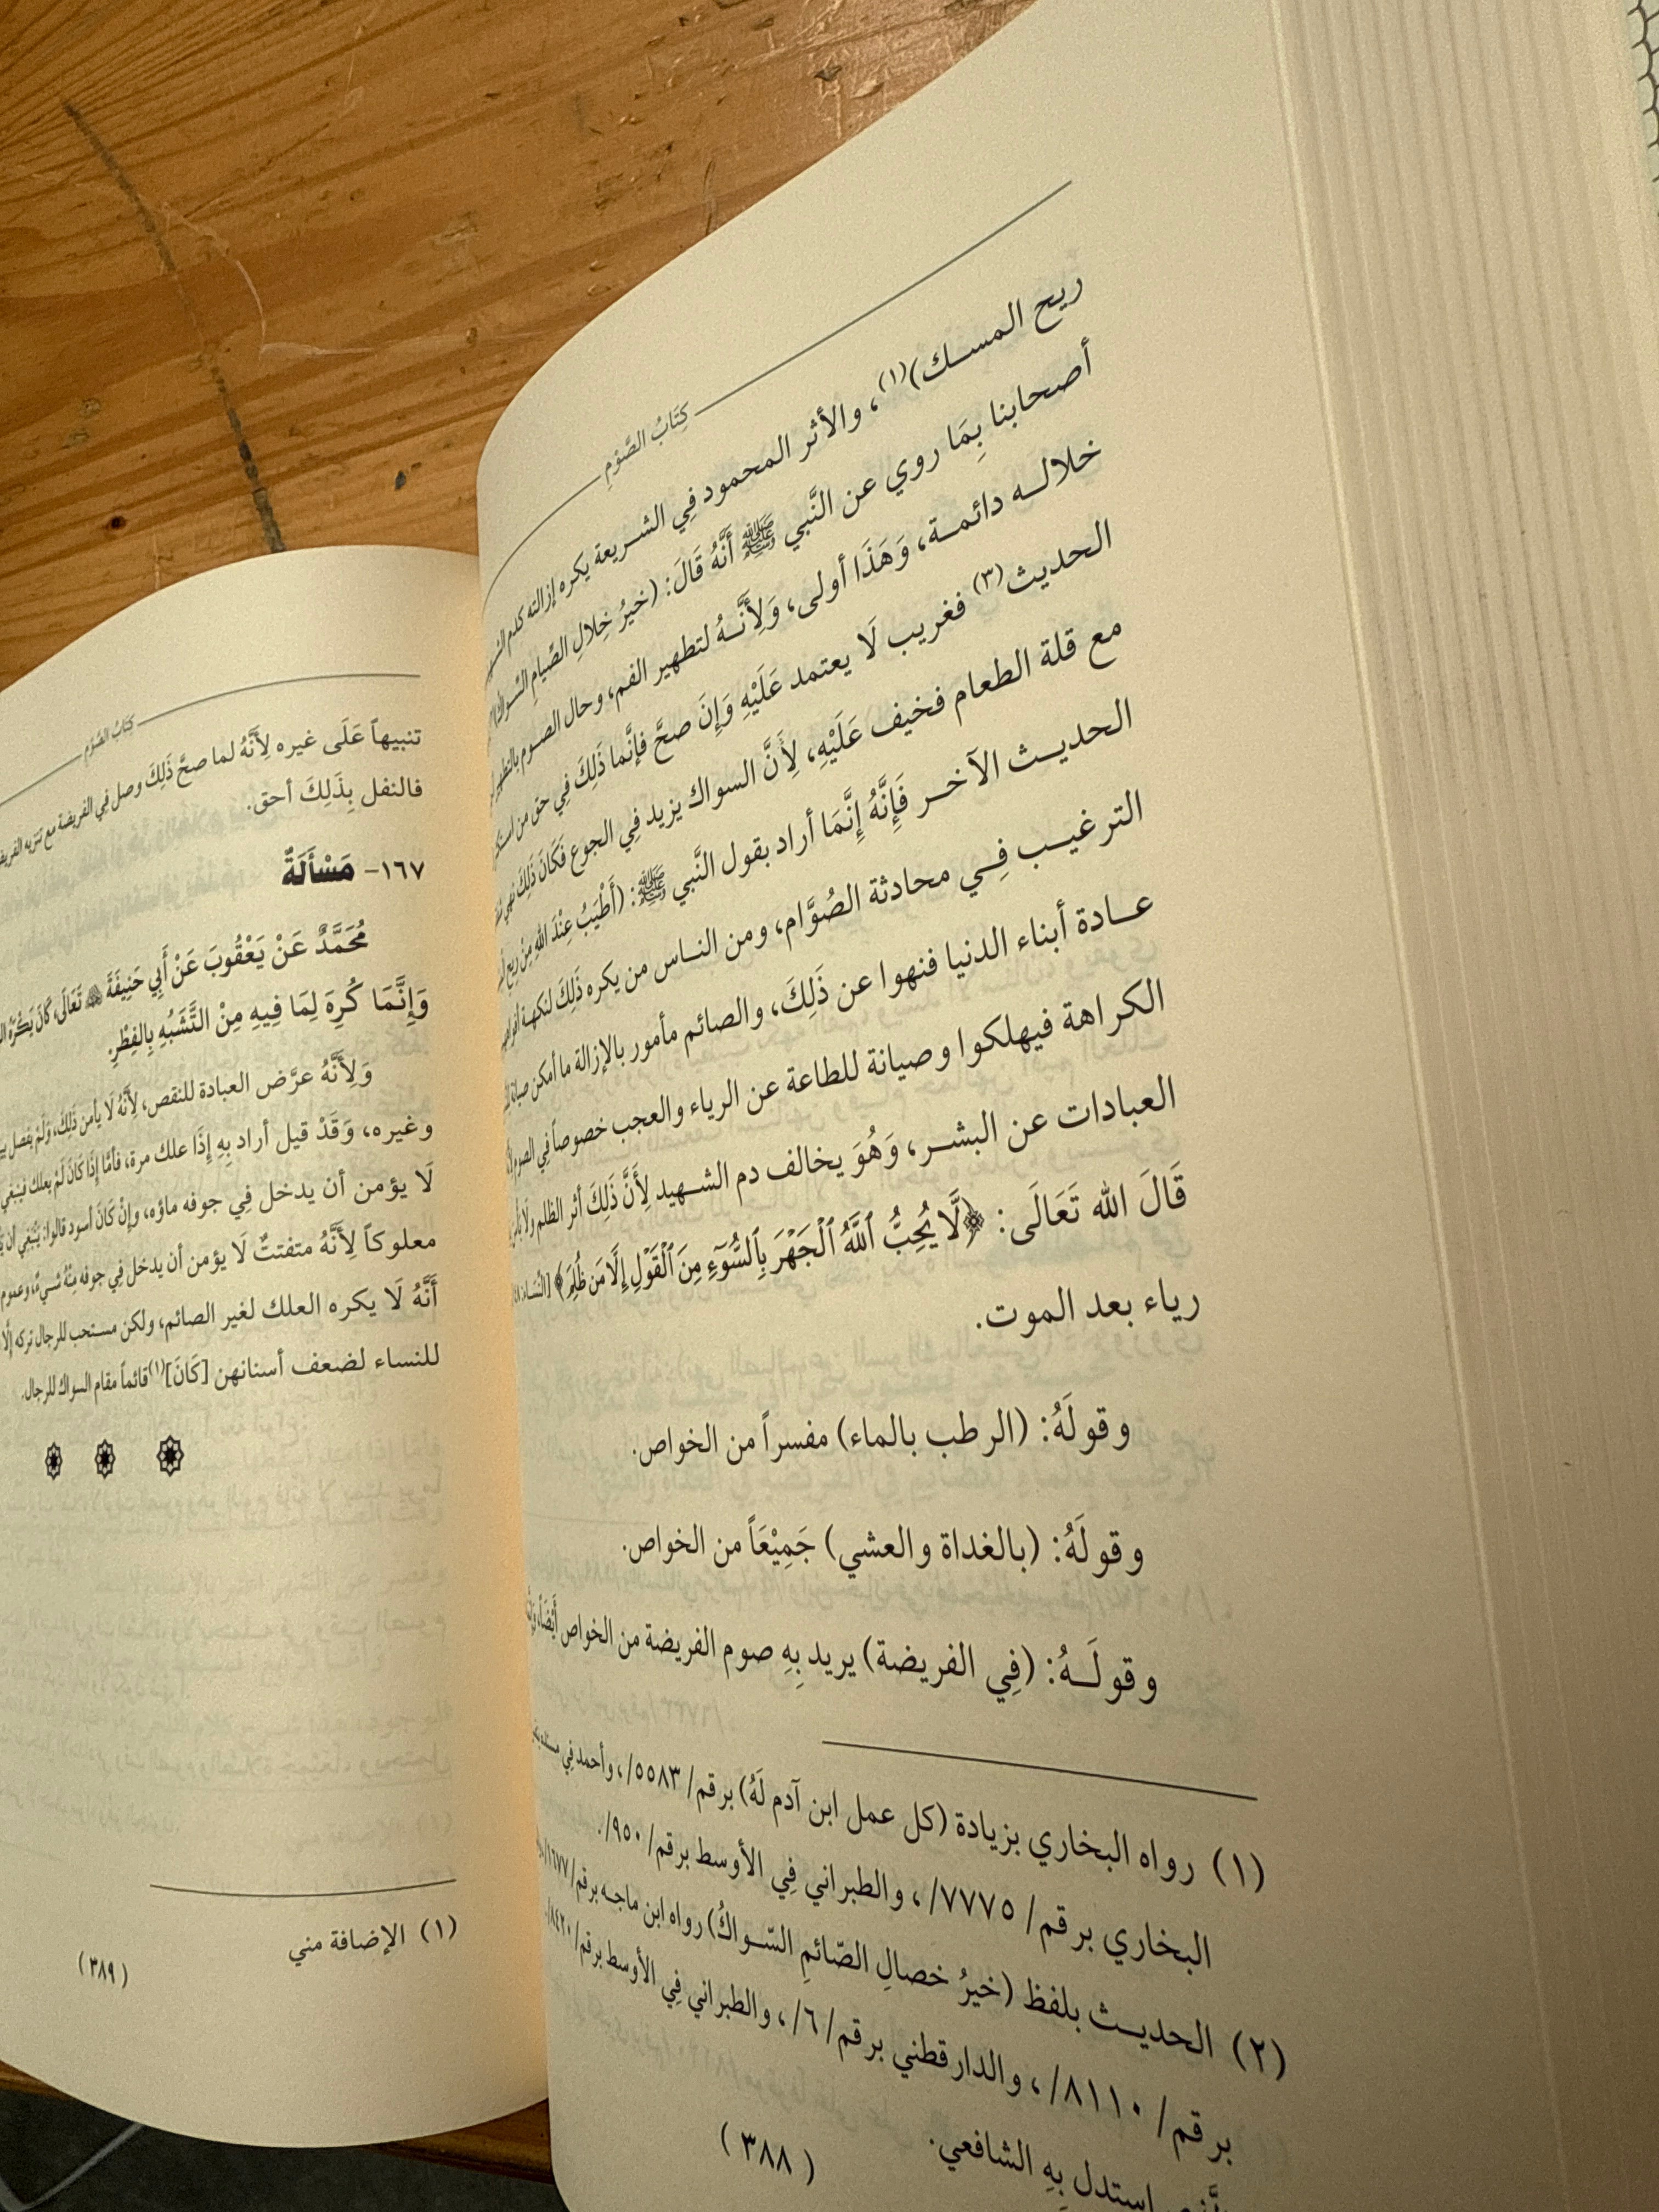 كِتَابُ الصَّوْمِ
ريح المسك)(١)، والأثر المحمود فِي الشريعة يكره إزالته كدم
أصحابنا بِمَا روي عن النَّبي ﷺ أَنَّهُ قَالَ: (خيرُ خِلالِ الصِّيامِ السِّواك)
خلاله دائمة، وَهَذَا أولى، وَلِأَنَّهُ لتطهير الفم، وحال الصوم
الحديث(٣) فغريب لَا يعتمد عَلَيْهِ وَإِنَ صحَّ فإنَّما ذَلِكَ فِي حق من
مع قلة الطعام فخيف عَلَيْهِ، لِأَنَّ السواك يزيد فِي الجوع فَكَانَ ذَلِكَ
الحديث الآخر فَإِنَّهُ إِنَّمَا أراد بقول النَّبي ﷺ: (أَطْيَبُ عِنْدَ اللهِ مِنْ رِيحِ
الترغيب فِي محادثة الصُوَّام، ومن الناس من يكره ذَلِكَ لنكهة
عادة أبناء الدنيا فنهوا عن ذَلِكَ، والصائم مأمور بالإزالة ما أمكن
الكراهة فيهلكوا وصيانة للطاعة عن الرياء والعجب خصوصاً فِي الصوم
العبادات عن البشر، وَهُوَ يخالف دم الشهيد لِأَنَّ ذَلِكَ أثر الظلم
قَالَ الله تَعَالَى: ﴿لَّا يُحِبُّ ٱللَّهُ ٱلْجَهْرَ بِٱلسُّوٓءِ مِنَ ٱلْقَوْلِ إِلَّا مَن ظُلِمَ﴾
رياء بعد الموت.
وقولَهُ: (الرطب بالماء) مفسراً من الخواص.
وقولَهُ: (بالغداة والعشي) جَمِيْعَاً من الخواص.
وقولَهُ: (فِي الفريضة) يريد بِهِ صوم الفريضة من الخواص أَيْضَاً،
(١) رواه البخاري بزيادة (كل عمل ابن آدم لَهُ) برقم/ ٥٥٨٣/، وأحمد فِي
البخاري برقم/ ٧٧٧٥/، والطبراني فِي الأوسط برقم/ ٩٥٠/.
(٢) الحديث بلفظ (خيرُ خصالِ الصّائمِ السّواكُ) رواه ابن ماجه برقم/ ١٦٧٧/
برقم/ ٨١١٠/، والدارقطني برقم/ ٦/، والطبراني فِي الأوسط برقم/ ٨٤٢٠/
استدل بِهِ الشافعي.
(٣٨٨)
كِتَابُ الصَّوْمِ
تنبيهاً عَلَى غيره لِأَنَّهُ لما صحَّ ذَلِكَ وصل فِي الفريضة مع
فالنفل بِذَلِكَ أحق.
١٦٧- مَسْأَلَةٌ
مُحَمَّدٌ عَنْ يَعْقُوبَ عَنْ أَبِي حَنِيفَةَ تَعَالَى، كَانَ يَكْرَهُ
وَإِنَّمَا كُرِهَ لِمَا فِيهِ مِنْ التَّشَبُهِ بِالفِطْرِ.
وَلِأَنَّهُ عرَّض العبادة للنقص، لِأَنَّهُ لَا يأمن ذَلِكَ، وَلَمْ يفصل
وغيره، وَقَدْ قيل أراد بِهِ إِذَا علك مرة، فأمَّا إِذَا كَانَ لَمْ يعلك
لَا يؤمن أن يدخل فِي جوفه ماؤه، وإِنْ كَانَ أسود قالوا:
معلوكاً لِأَنَّهُ متفتتٌ لَا يؤمن أن يدخل فِي جوفه مِنْهُ شيءٌ، وعموم
أَنَّهُ لَا يكره العلك لغير الصائم، ولكن مستحب للرجال تركه إِلَّا
للنساء لضعف أسنانهن [كَانَ](١) قائماً مقام السواك للرجال.
(١) الإضافة مني
(٣٨٩)